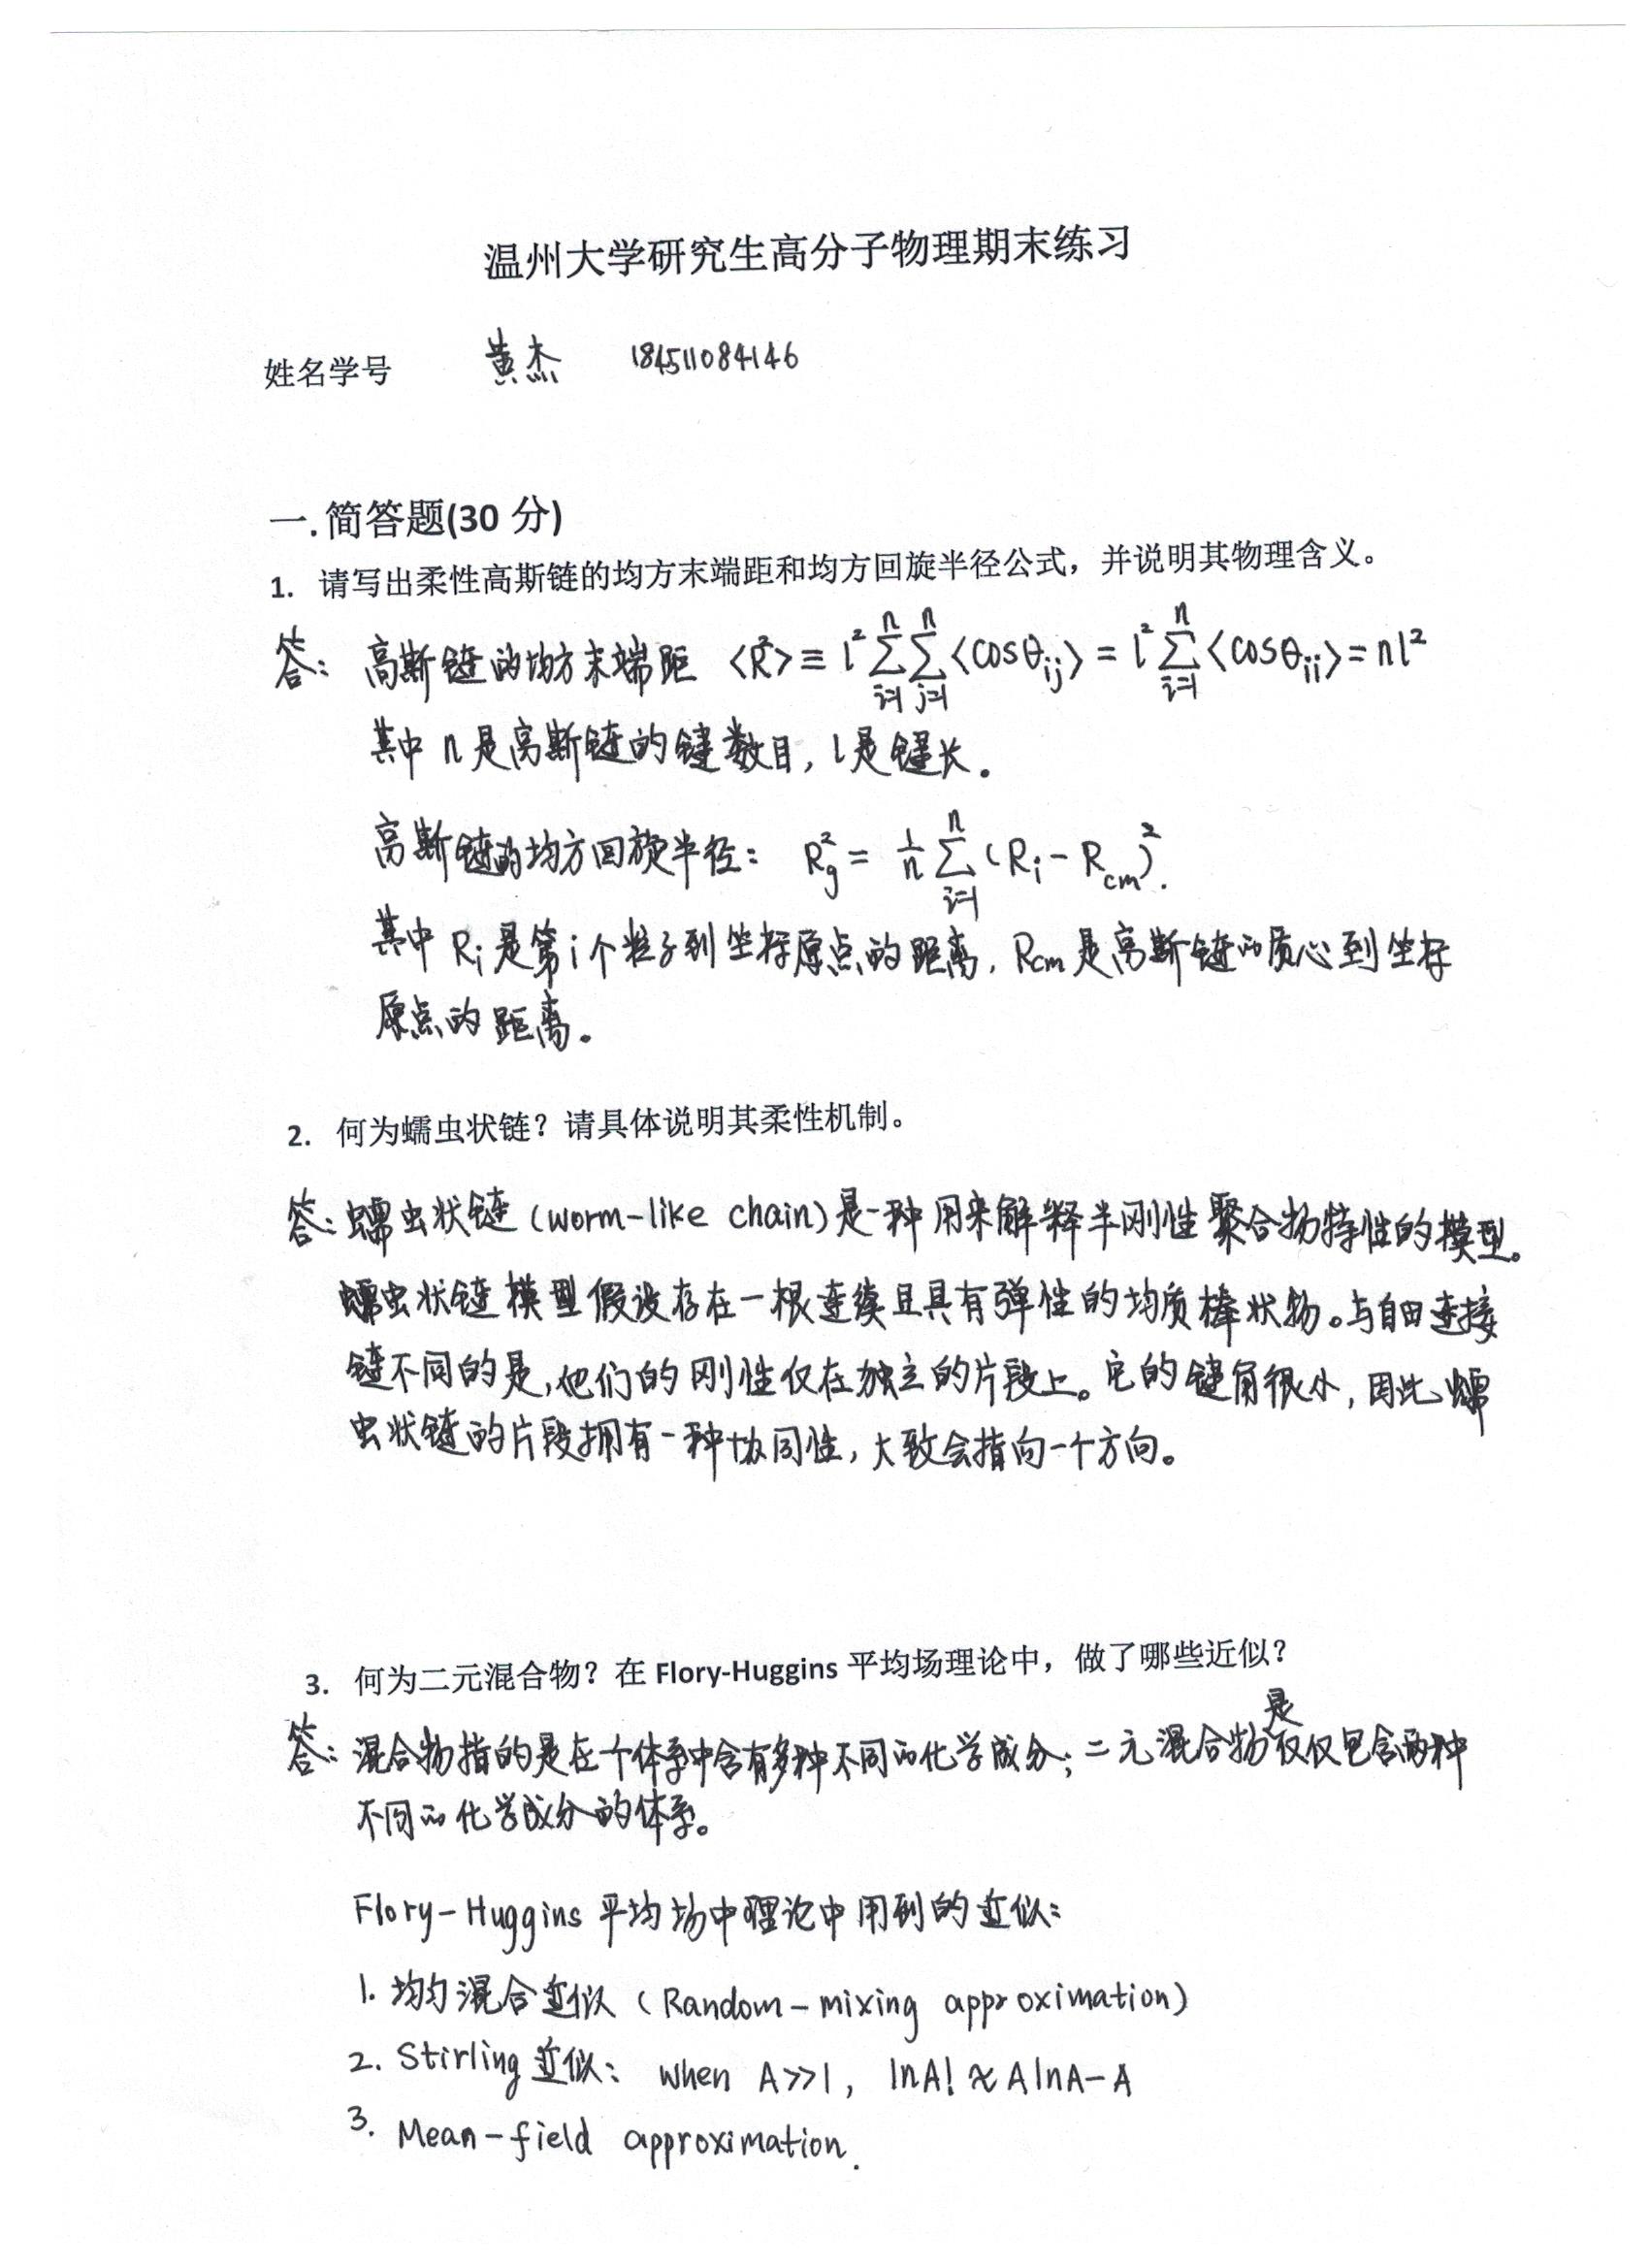 温州大学研究生高分子物理期末练习
姓名学号 黄杰 18451084146
一.简答题(30 分)
1. 请写出柔性高斯链的均方末端距和均方回旋半径公式，并说明其物理含义。
答: 高斯链的均方末端距 <R²> ≡ l² Σ_{i=1}^{n} Σ_{j=1}^{n} <cosθ_{ij}> = l² Σ_{i=1}^{n} <cosθ_{ii}> = nl²
其中 n 是高斯链的键数目, l是键长。
高斯链的均方回旋半径: R_g² = 1/n Σ_{i=1}^{n} (R_i - R_{cm})².
其中 R_i 是第i个粒子到坐标原点的距离, R_{cm} 是高斯链的质心到坐标
原点的距离。
2. 何为蠕虫状链？请具体说明其柔性机制。
答: 蠕虫状链 (worm-like chain) 是一种用来解释半刚性聚合物特性的模型。
蠕虫状链模型假设存在一根连续且具有弹性的均质棒状物。与自由连接
链不同的是,他们的刚性仅在独立的片段上。它的键角很小, 因此蠕
虫状链的片段拥有一种协同性, 大致会指向一个方向。
3. 何为二元混合物？在 Flory-Huggins 平均场理论中，做了哪些近似？
答: 混合物指的是在个体系中含有多种不同的化学成分; 二元混合物是仅仅包含两种
不同的化学成分的体系。
Flory-Huggins 平均场中理论中用到的近似:
1. 均匀混合近似 (Random-mixing approximation)
2. Stirling 近似: when A>>1, lnA! ≈ AlnA-A
3. Mean-field approximation.